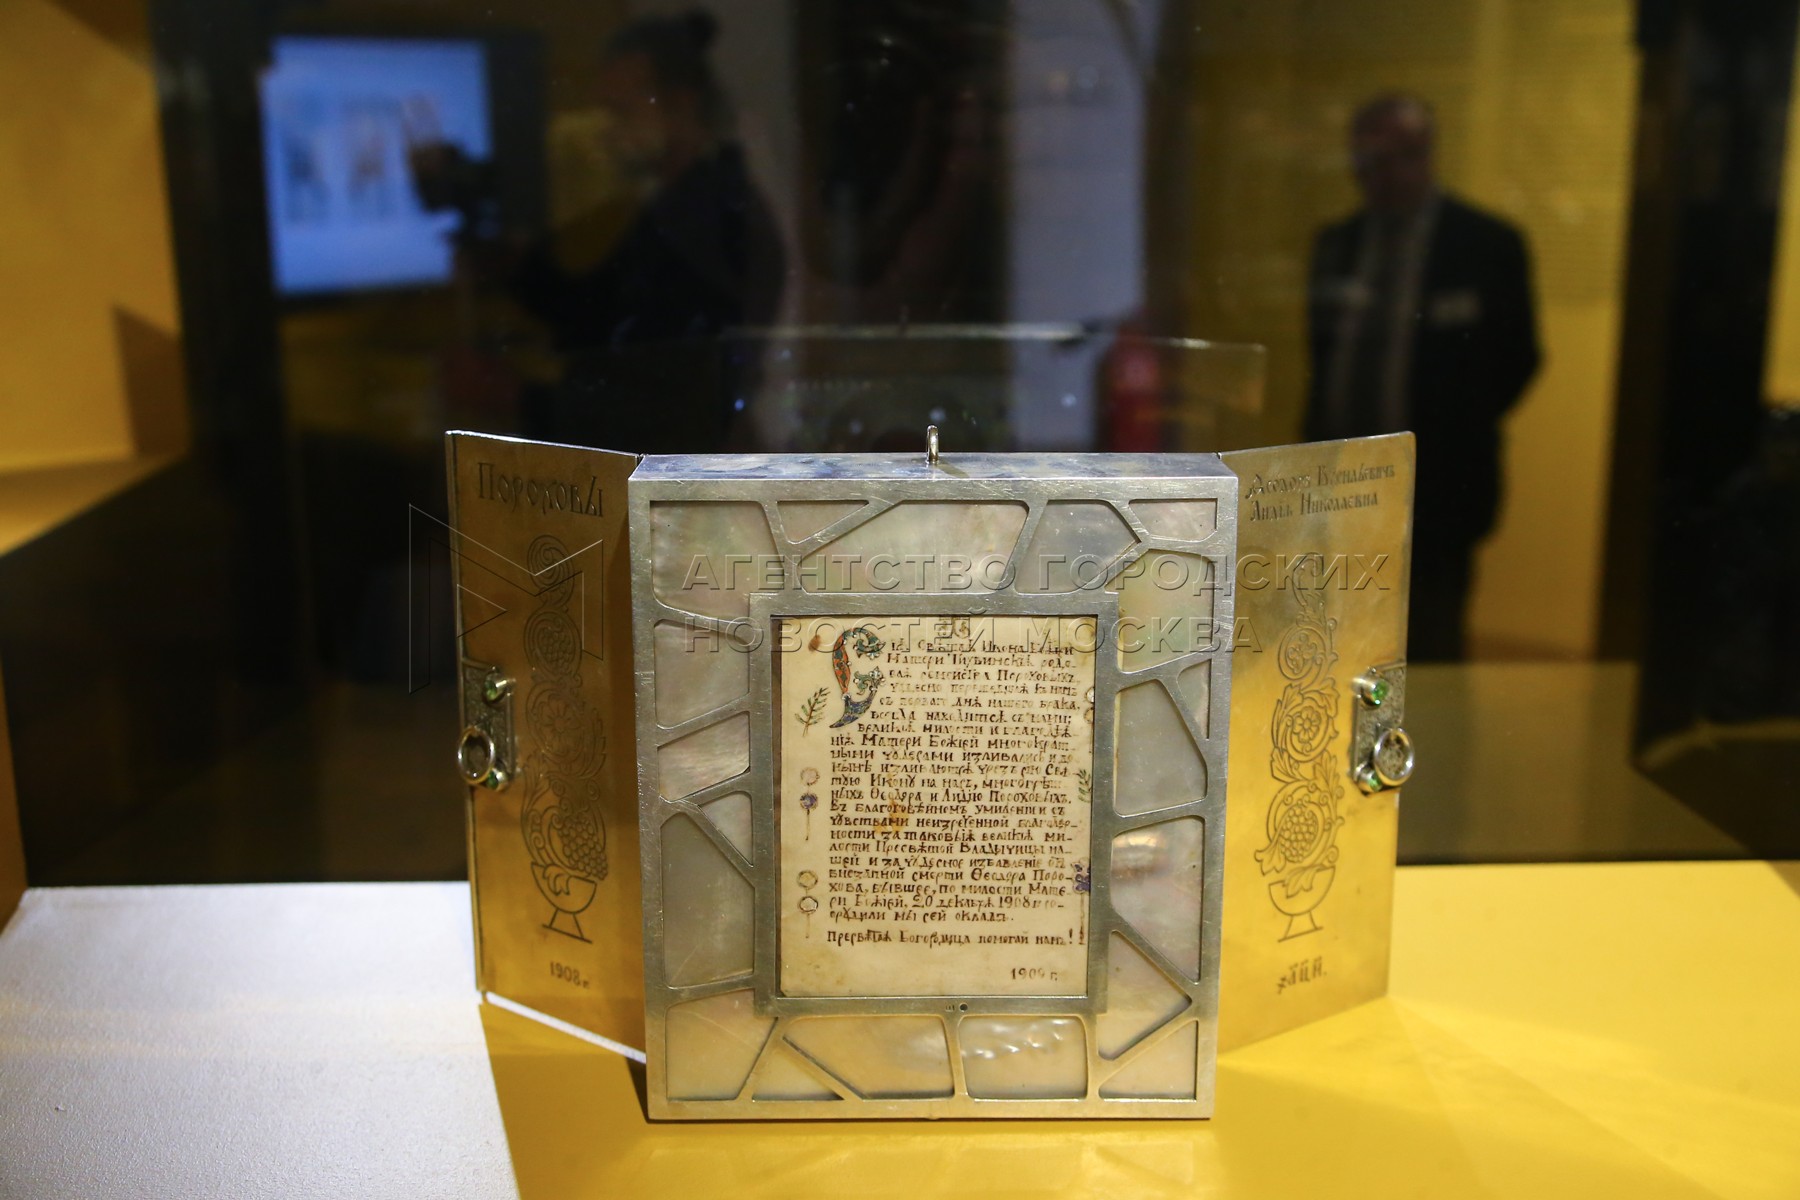 Пороховы
1908 г.
АГЕНТСТВО ГОРОДСКИХ
НОВОСТЕЙ МОСКВА
Сїѧ Свѧтаѧ Икона Божїей
Матери Тихвинскаѧ родо-
ваѧ семейства Пороховыхъ
чудесно перешедшаѧ къ намъ
съ перваго днѧ нашего брака,
всегда находитсѧ съ нами;
великїѧ милости и благодѣѧ-
нїѧ Матери Божїей многократ-
ными чудесами изливались и до-
нынѣ изливаютсѧ чрезъ сїю Свѧ-
тую Икону на насъ, многогрѣш-
ныхъ Ѳеодора и Лидїю Пороховыхъ.
Въ благоговѣйномъ умиленїи съ
чувствами неизреченной благодар-
ности за таковыѧ великїѧ ми-
лости Пресвѧтой Владычицы на-
шей и за чудесное избавленїе отъ
внезапной смерти Ѳеодора Поро-
хова, бывшее, по милости Мате-
ри Божїей, 20 декабрѧ 1908 г. со-
орудили мы сей окладъ.
Пресвѧтаѧ Богородица помогай намъ!
1909 г.
Ѳеодоръ Васильевичъ
Лидїѧ Николаевна